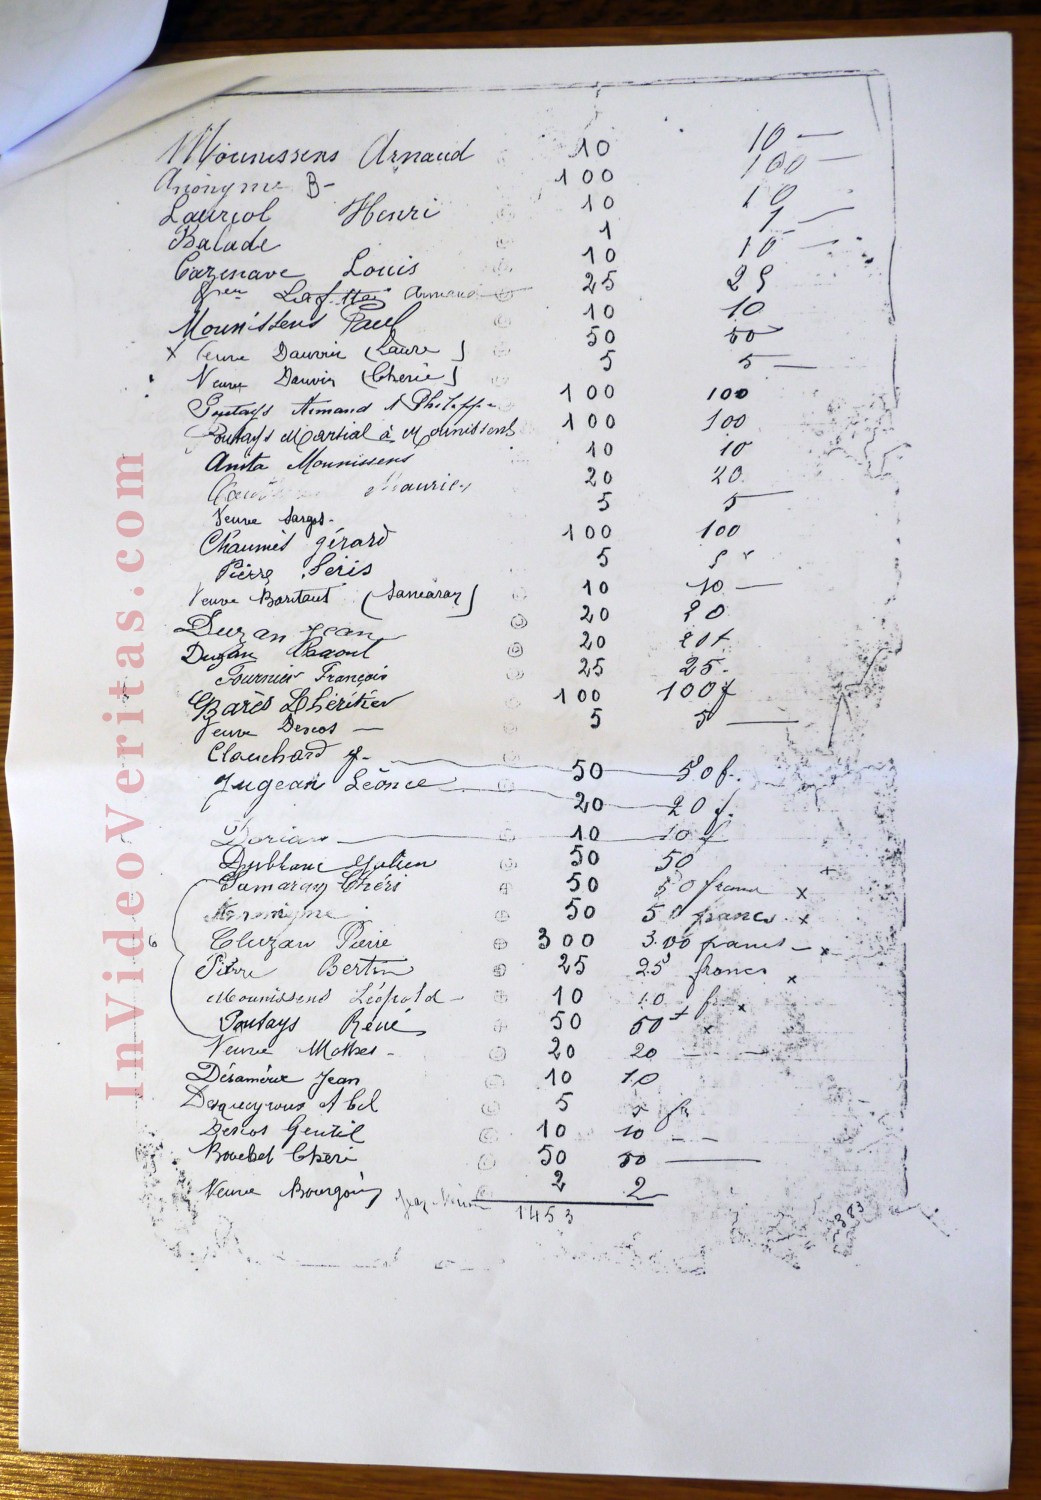 Mounissens Arnaud 10 10 —
Anonyme B- 100 100 —
Lauriol Henri 10 10
Balade 1 1 —
Cazenave Louis 10 10 —
Laffitte 25 25
Mounissens Paul 10 10
x Veuve Dauvin (Laure) 50 50
Veuve Dauvin (Cherie) 5 5 —
Poutays Armand & Philippe 100 100
Poutays Martial à Mounissens 100 100
Anita Mounissens 10 10
Maurice 20 20.
Veuve Sarges- 5 5
Chaumès gérard 100 100
Pierre Séris 5 5
Veuve Baritaut (Samaran) 10 10 —
Duzan Jean 20 20
Duzan Raoul 20 20f
Fournier François 25 25.
Barès Lhéritier 100 100f
Veuve Descos — 5 5 —
Clouchard J- 50 50f.
Jugean Léonce 20 20f.
Dorian 10 10f
Dublanc Julien 50 50
Samaran Chéri 50 50 francs x
Anonyme 50 50 francs x
6 Cluzan Pierre 300 300 francs - x
Pierre Bertin 25 25 francs x
Mounissens Léopold - 10 10 f. x
Poutays Réné 50 50 f x
Veuve Mothes - 20 20 —
Désamérie Jean 10 10
Desqueyroux Abel 5 5 fr
Descos Gentil 10 10 —
Bouchet Cheri 50 50 —
Veuve Bourgoin 2 2
1453
383
InVideoVeritas.com